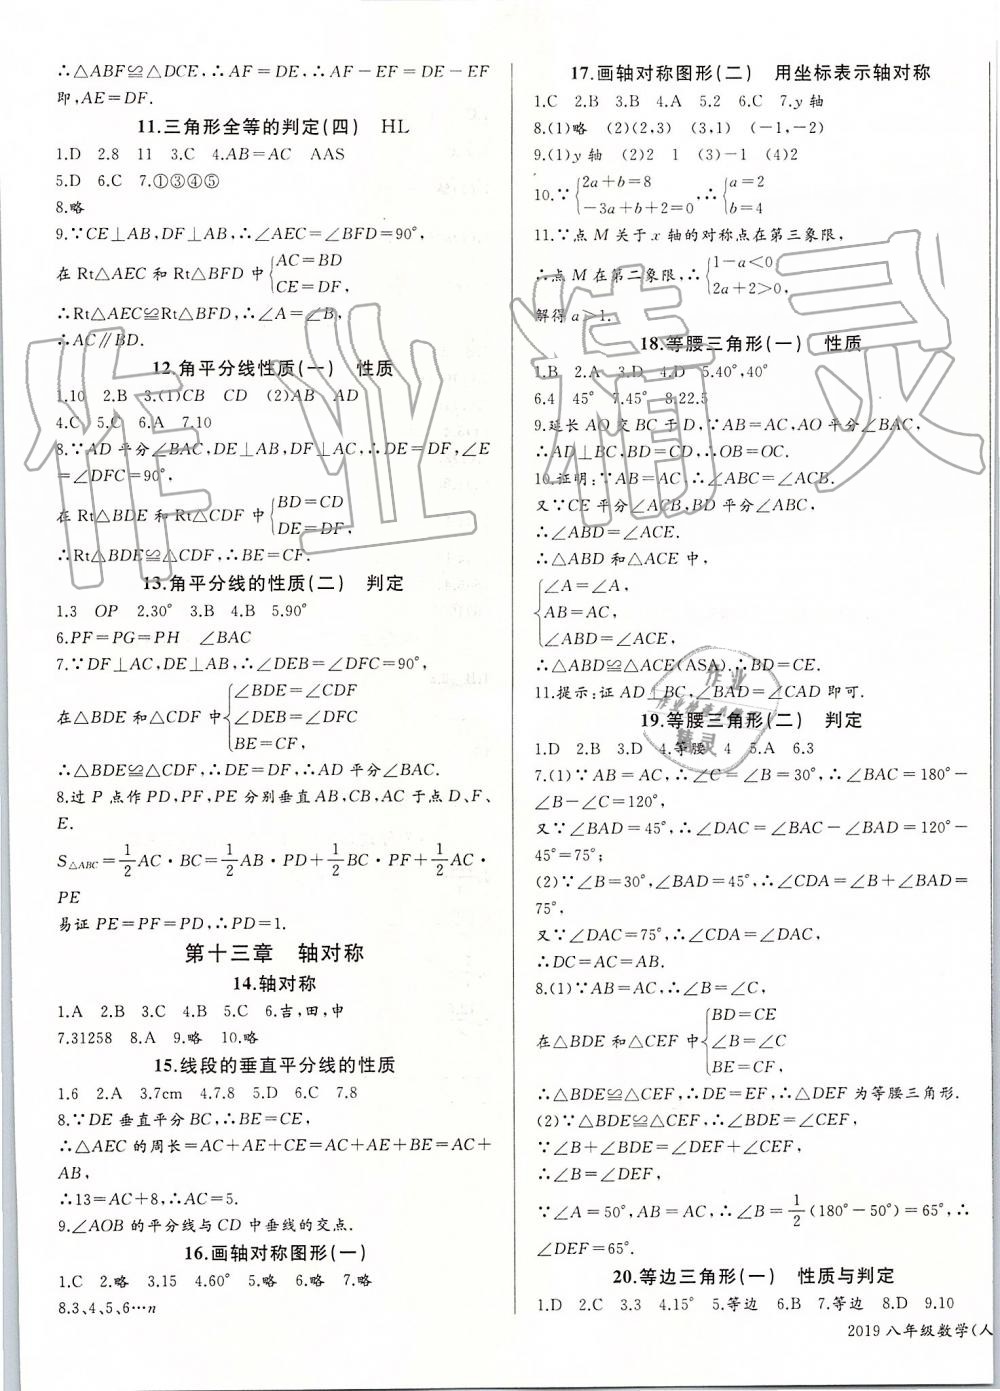 ∴△ABF≌△DCE,∴AF=DE,∴AF-EF=DE-EF
即,AE=DF.
11.三角形全等的判定(四) HL
1.D 2.8 11 3.C 4.AB=AC AAS
5.D 6.C 7.①③④⑤
8.略
9.∵CE⊥AB,DF⊥AB,∴∠AEC=∠BFD=90°,
在 Rt△AEC 和 Rt△BFD 中{AC=BD
CE=DF,
∴Rt△AEC≌Rt△BFD,∴∠A=∠B,
∴AC∥BD.
12.角平分线性质(一) 性质
1.10 2.B 3.(1)CB CD (2)AB AD
4.C 5.C 6.A 7.10
8.∵AD 平分∠BAC,DE⊥AB,DF⊥AC,∴DE=DF,∠E
=∠DFC=90°,
在 Rt△BDE 和 Rt△CDF 中{BD=CD
DE=DF,
∴Rt△BDE≌△CDF,∴BE=CF.
13.角平分线的性质(二) 判定
1.3 OP 2.30° 3.B 4.B 5.90°
6.PF=PG=PH ∠BAC
7.∵DF⊥AC,DE⊥AB,∴∠DEB=∠DFC=90°,
在△BDE 和△CDF 中{∠BDE=∠CDF
∠DEB=∠DFC
BE=CF,
∴△BDE≌△CDF,∴DE=DF,∴AD 平分∠BAC.
8.过 P 点作 PD,PF,PE 分别垂直 AB,CB,AC 于点 D、F、
E.
S△ABC=1/2AC·BC=1/2AB·PD+1/2BC·PF+1/2AC·
PE
易证 PE=PF=PD,∴PD=1.
第十三章 轴对称
14.轴对称
1.A 2.B 3.C 4.B 5.C 6.吉,田,中
7.31258 8.A 9.略 10.略
15.线段的垂直平分线的性质
1.6 2.A 3.7cm 4.7.8 5.D 6.C 7.8
8.∵DE 垂直平分 BC,∴BE=CE,
∴△AEC 的周长=AC+AE+CE=AC+AE+BE=AC+
AB,
∴13=AC+8,∴AC=5.
9.∠AOB 的平分线与 CD 中垂线的交点.
16.画轴对称图形(一)
1.C 2.略 3.15 4.60° 5.略 6.略 7.略
8.3、4、5、6…n
17.画轴对称图形(二) 用坐标表示轴对称
1.C 2.B 3.B 4.A 5.2 6.C 7.y 轴
8.(1)略 (2)(2,3) (3,1) (-1,-2)
9.(1)y 轴 (2)2 1 (3)-1 (4)2
10.∵{2a+b=8
-3a+b+2=0,∴{a=2
b=4
11.∵点 M 关于 x 轴的对称点在第三象限,
∴点 M 在第二象限,∴{1-a<0
2a+2>0,
解得 a>1.
18.等腰三角形(一) 性质
1.B 2.A 3.D 4.D 5.40°,40°
6.4 45° 7.45° 8.22.5
9.延长 AO 交 BC 于 D,∵AB=AC,AO 平分∠BAC,
∴AD⊥BC,BD=CD,∴OB=OC.
10.证明:∵AB=AC,∴∠ABC=∠ACB.
又∵CE 平分∠ACB,BD 平分∠ABC,
∴∠ABD=∠ACE.
∴△ABD 和△ACE 中,
{∠A=∠A,
AB=AC,
∠ABD=∠ACE,
∴△ABD≌△ACE(ASA).∴BD=CE.
11.提示:证 AD⊥BC,∠BAD=∠CAD 即可.
19.等腰三角形(二) 判定
1.D 2.B 3.D 4.等腰 4 5.A 6.3
7.(1)∵AB=AC,∴∠C=∠B=30°,∴∠BAC=180°-
∠B-∠C=120°,
又∵∠BAD=45°,∴∠DAC=∠BAC-∠BAD=120°-
45°=75°;
(2)∵∠B=30°,∠BAD=45°,∴∠CDA=∠B+∠BAD=
75°,
又∵∠DAC=75°,∴∠DAC=∠CDA,
∴DC=AC=AB.
8.(1)∵AB=AC,∴∠B=∠C,
在△BDE 和△CEF 中{BD=CE
∠B=∠C
BE=CF,
∴△BDE≌△CEF,∴DE=EF,∴△DEF 为等腰三角形.
(2)∵△BDE≌△CEF,∴∠BDE=∠CEF,
∵∠B+∠BDE=∠DEF+∠CEF,
∴∠B=∠DEF,
∵∠A=50°,AB=AC,∴∠B=1/2(180°-50°)=65°,∴
∠DEF=65°.
20.等边三角形(一) 性质与判定
1.D 2.C 3.3 4.15° 5.等边 6.B 7.等边 8.D 9.10
2019 八年级数学(人
作业精灵
作业
作业检查小
精灵